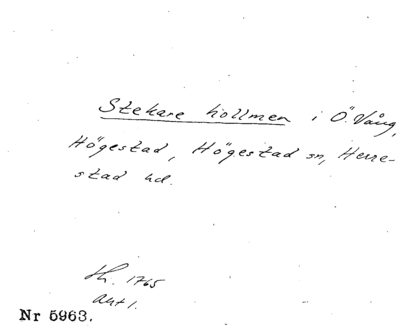 Stekare hollmen i Ö. Vång,
Högestad, Högestad sn, Herre-
stad hd.
1765
akt 1.
Nr 5963.